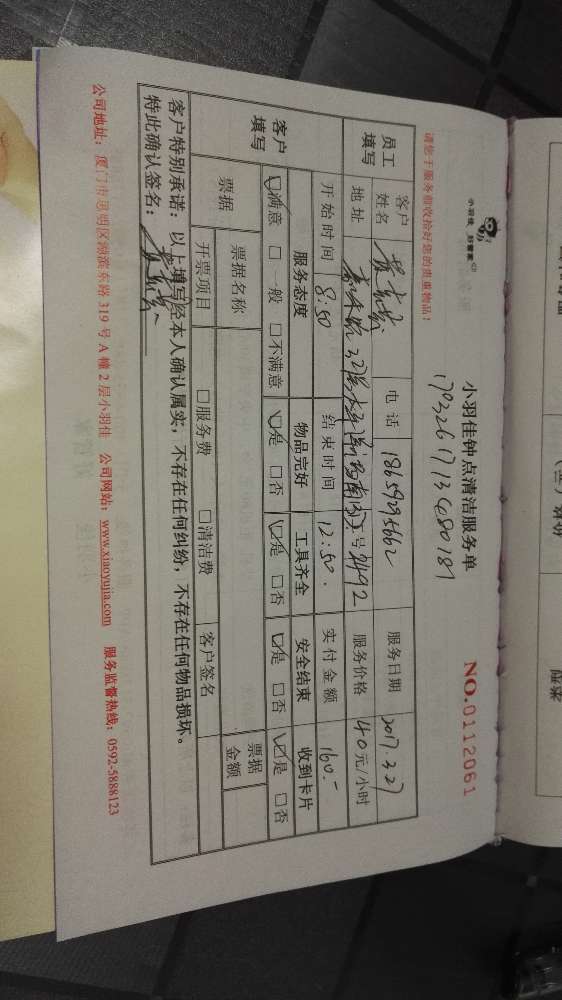 小羽佳 好管家
小羽佳钟点清洁服务单
NO.0112061
请您于服务前收拾好您的贵重物品！
员工填写
客户姓名
电话 18659295662
服务日期 2017.3.27
地址
服务价格 40元/小时
开始时间 8:50
结束时间 12:50.
实付金额 160.-
客户填写
服务态度 物品完好 工具齐全 安全结束 收到卡片
☑满意 □一般 □不满意 ☑是 □否 ☑是 □否 ☑是 □否 ☑是 □否
票据
票据名称
票据金额
开票项目 □服务费 □清洁费 客户签名
客户特别承诺：以上填写经本人确认属实，不存在任何纠纷，不存在任何物品损坏。
特此确认签名：
公司地址：厦门市思明区湖滨东路319号A幢2层小羽佳 公司网站：www.xiaoyujia.com 服务监督热线：0592-5888123